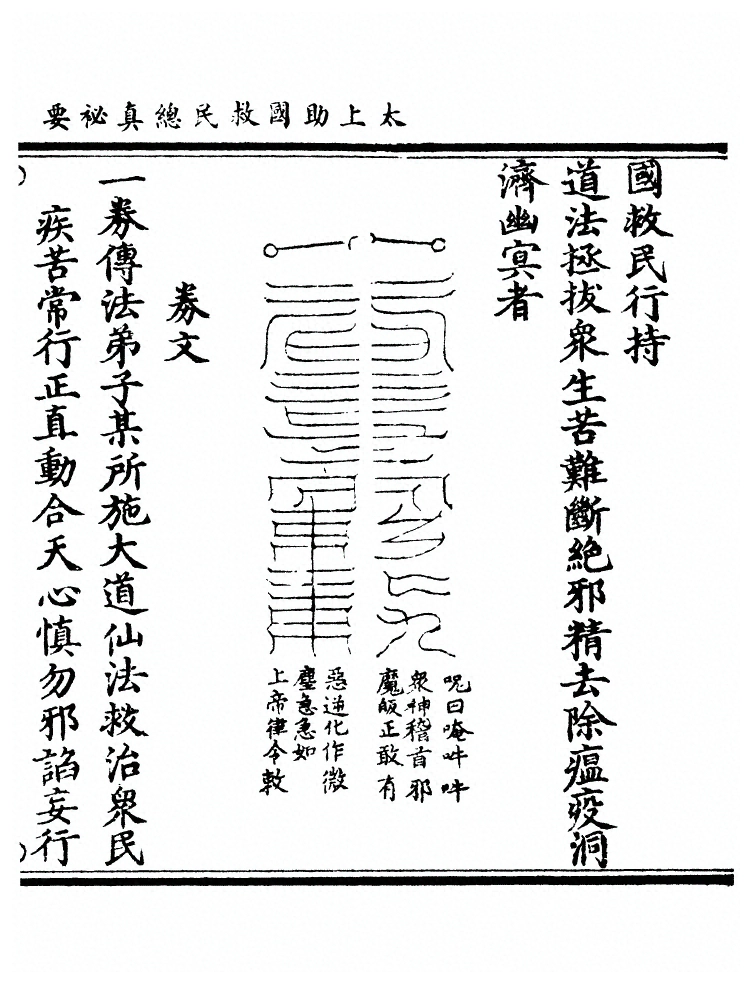 太上助國救民總真祕要
國救民行持
道法拯拔衆生苦難斷絕邪精去除瘟疫洞
濟幽冥者
呪曰唵吽吽
衆神稽首邪
魔皈正敢有
惡逆化作微
塵急急如
上帝律令敕
券文
一券傳法弟子某所施大道仙法救治衆民
疾苦常行正直動合天心慎勿邪諂妄行